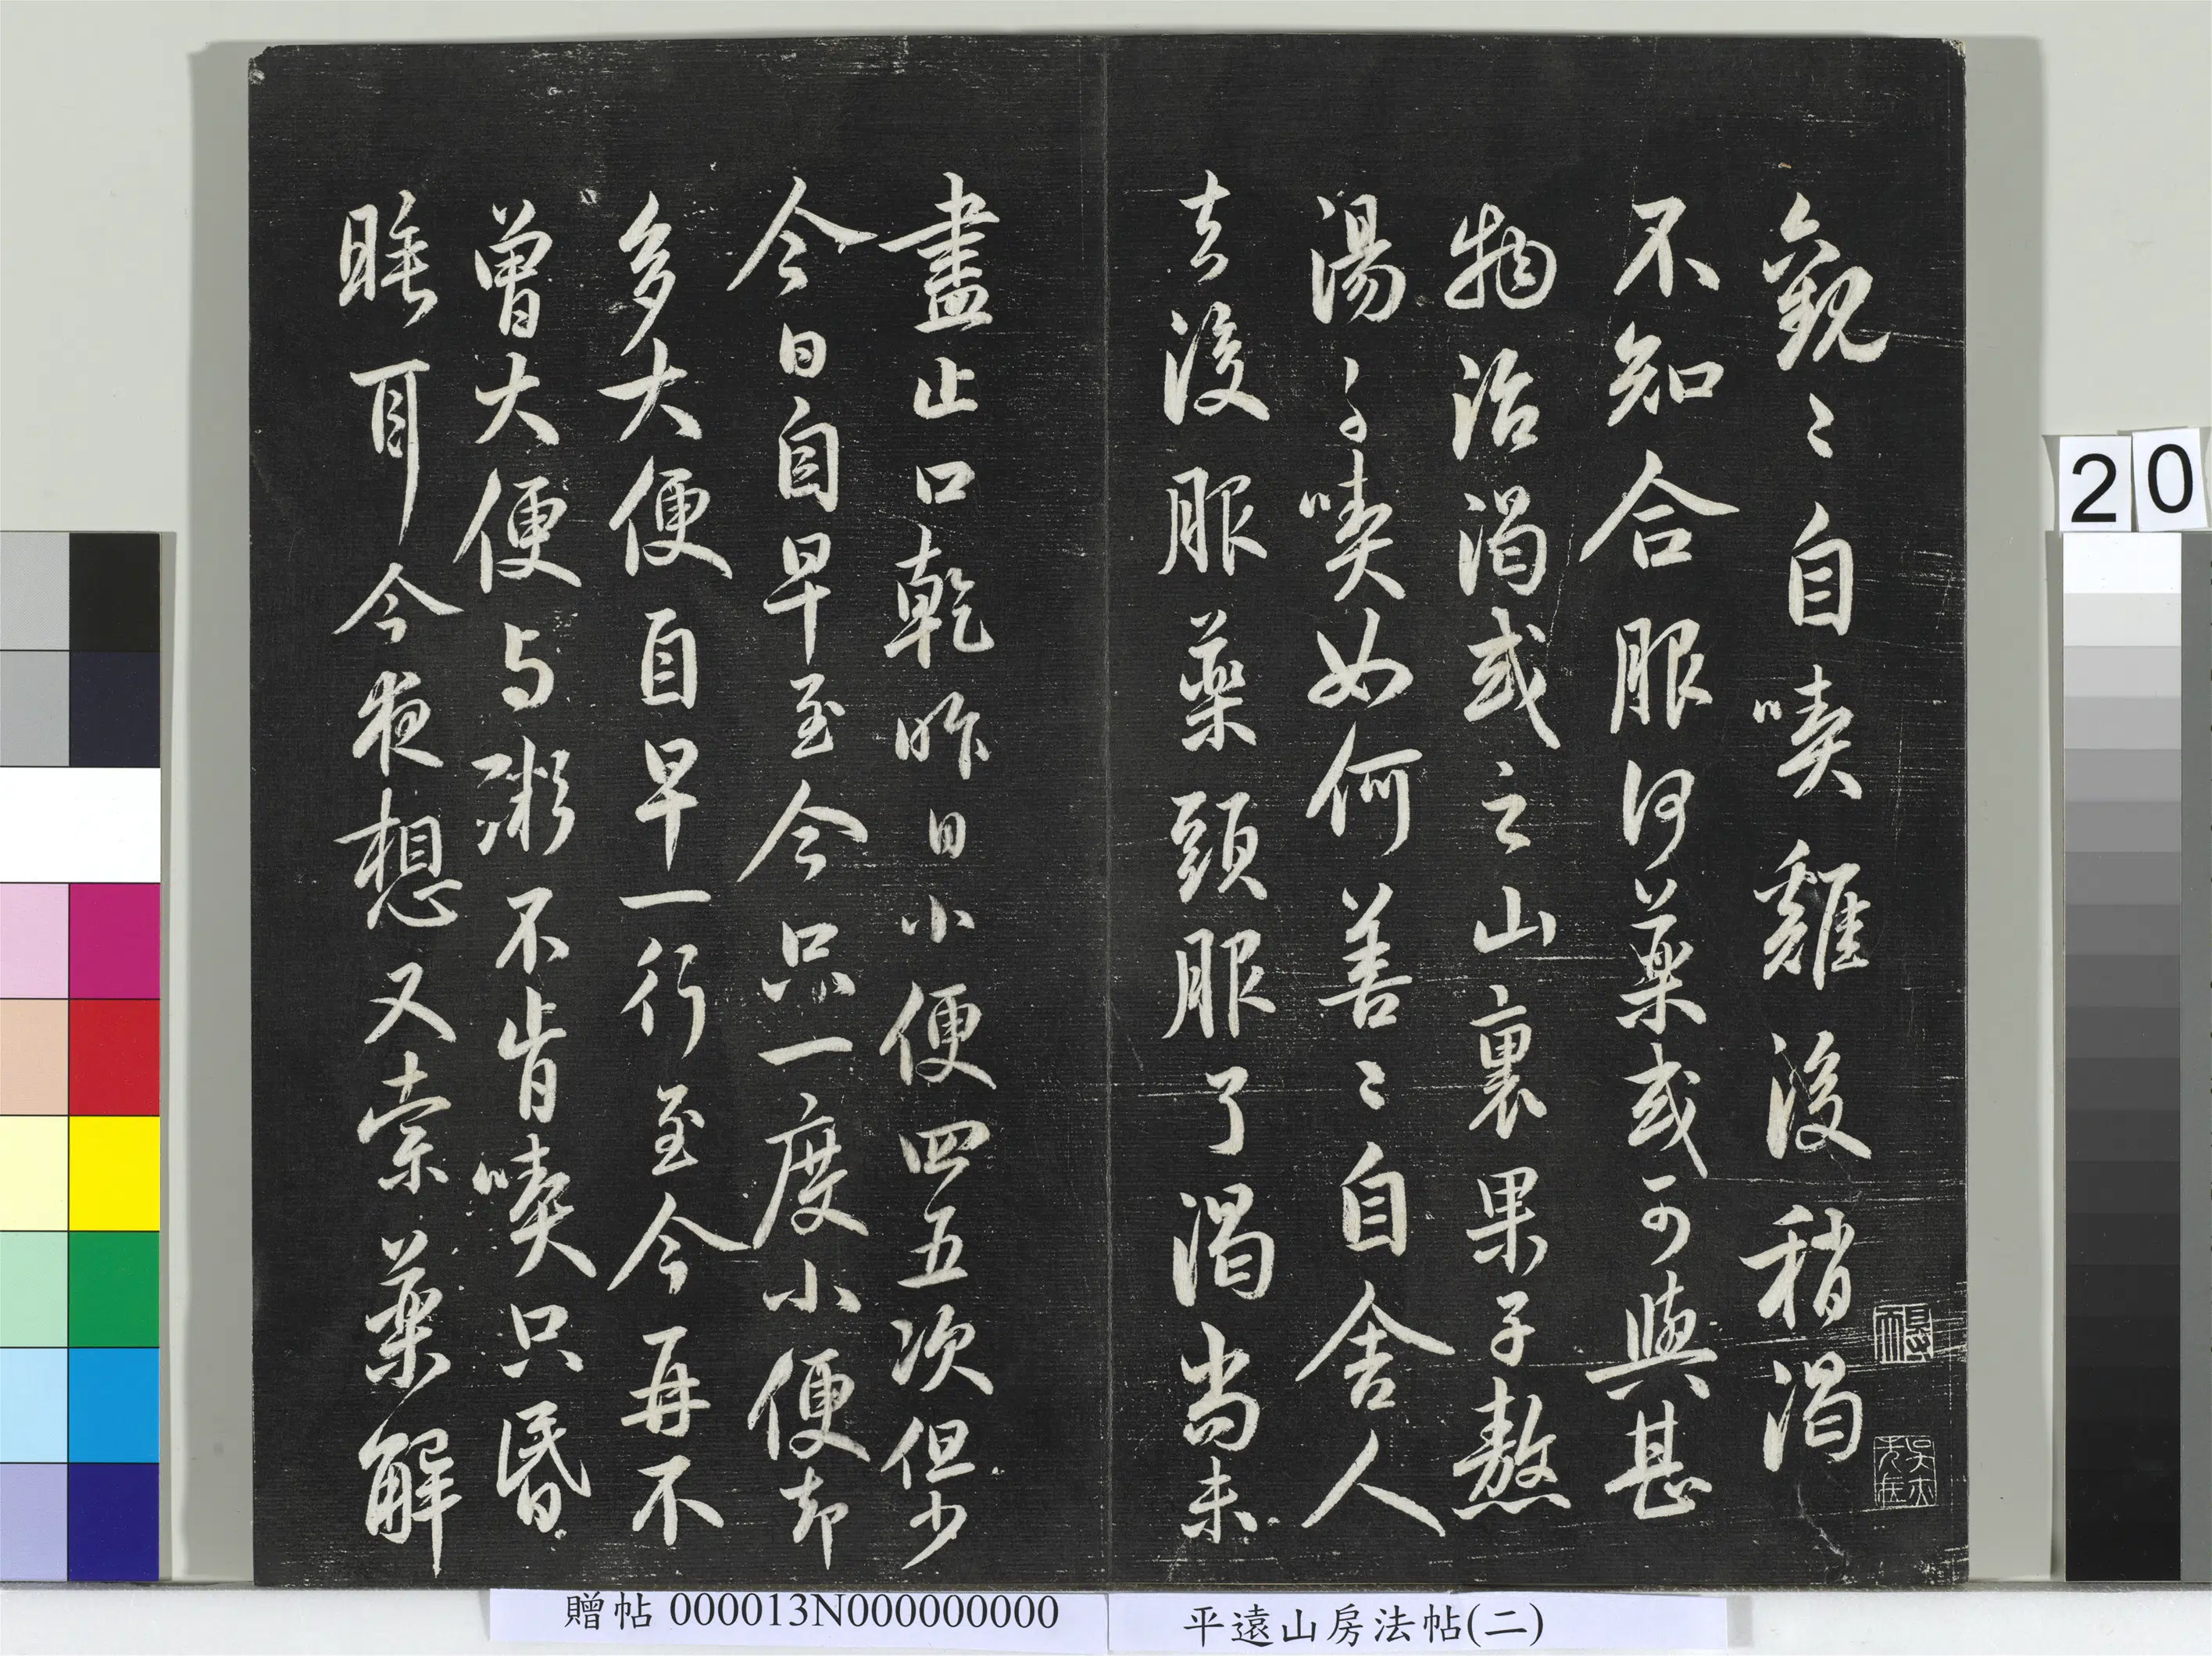 觀〻自喫雞後稍渴
不知合服何藥或可與甚
物治渴或之山裏果子熬
湯〻喫如何善〻自舍人
去後服藥頭服了渴尚未
盡止口乾昨日小便四五次但少
今日自早至今只一度小便却
多大便自早一行至今再不
曾大便与粥不肯喫只昏
睡耳今夜想又索藥解
20
贈帖 000013N000000000
平遠山房法帖(二)